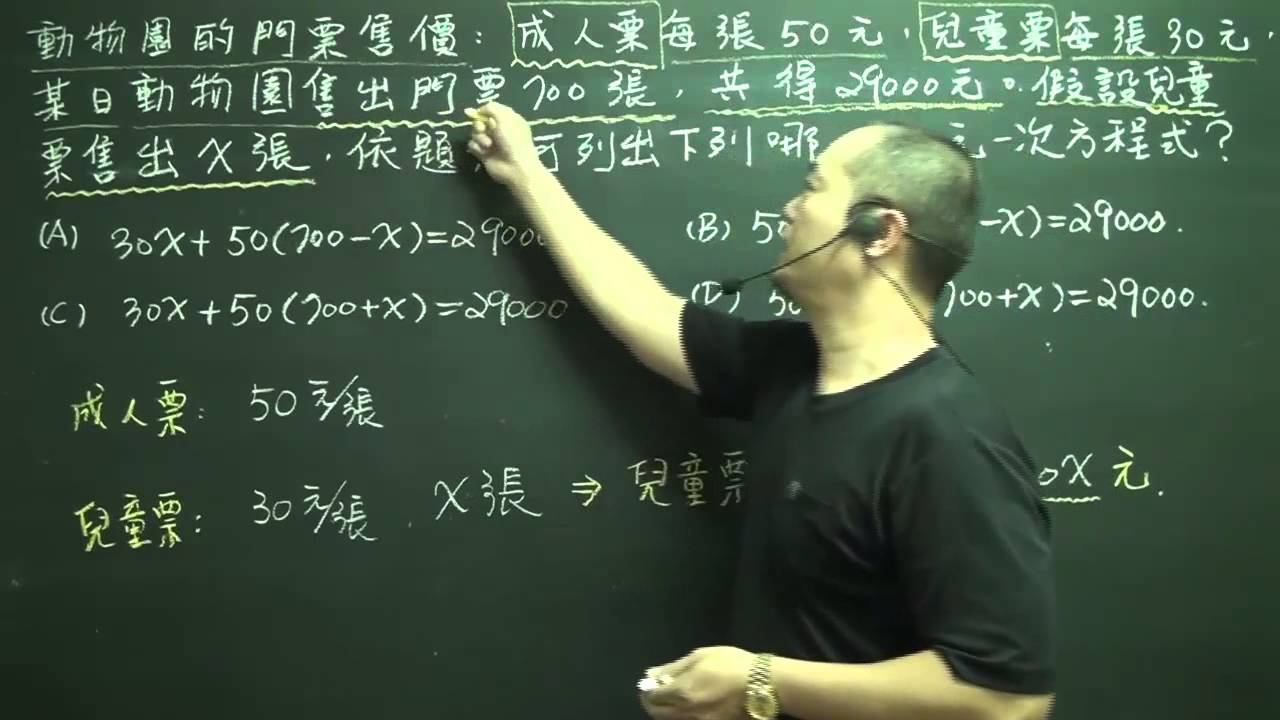 動物園的門票售價：成人票每張50元，兒童票每張30元，
某日動物園售出門票700張，共得29000元。假設兒童
票售出X張，依題 可列出下列哪 元一次方程式？
(A) 30X+50(700-X)=29000 (B) 50 -X)=29000.
(C) 30X+50(700+X)=29000 (D) 00+X)=29000.
成人票： 50元/張
兒童票： 30元/張，X張 ⇒ 兒童票 0X元.